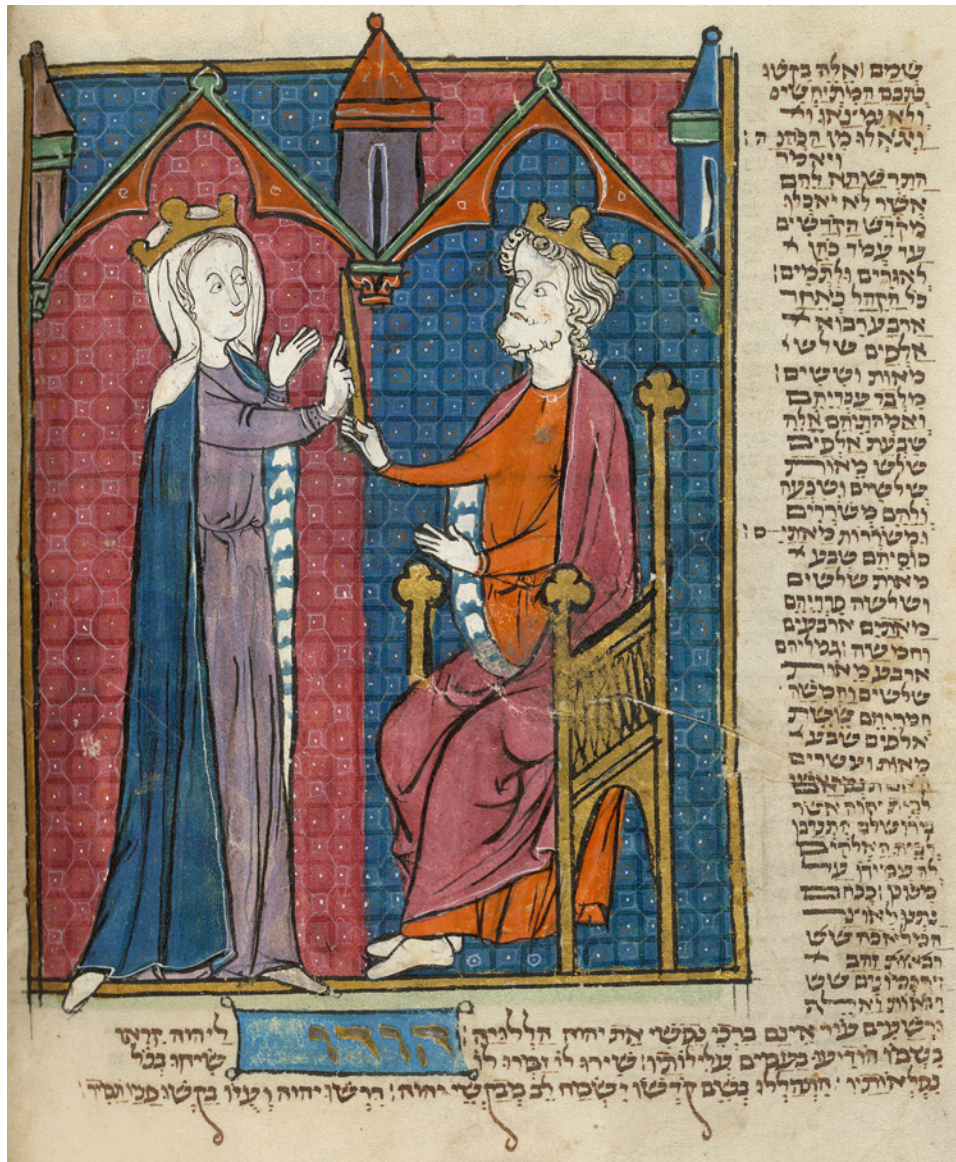 שמם ואלה בקשו
כתבם המתיחשים
ולא נמצאו
ויגאלו מן הכהנה:
ויאמר
התרשתא להם
אשר לא יאכלו
מקדש הקדשים
עד עמד כהן
לאורים ולתמים:
כל הקהל כאחד
ארבע רבוא
אלפים שלש
מאות וששים:
מלבד עבדיהם
ואמהתיהם אלה
שבעת אלפים
שלש מאות
שלשים ושבעה
ולהם משררים
ומשררות מאתים:
סוסיהם שבע
מאות שלשים
ושלשה פרדיהם
מאתים ארבעים
וחמשה: גמליהם
ארבע מאות
שלשים וחמשה
חמריהם ששת
אלפים שבע
מאות ועשרים
לבית יהוה אשר
בירושלם התנדבו
לבית האלהים
להעמידו על
מכונו: ככחם
נתנו לאוצר
המלאכה שש
רבאות זהב
דרכמונים שש
ורשעים עוד אינם ברכי נפשי את יהוה הללויה: הודו ליהוה קראו
בשמו הודיעו בעמים עלילותיו: שירו לו זמרו לו שיחו בכל
נפלאותיו: התהללו בשם קדשו ישמח לב מבקשי יהוה: דרשו יהוה ועזו בקשו פניו תמיד: